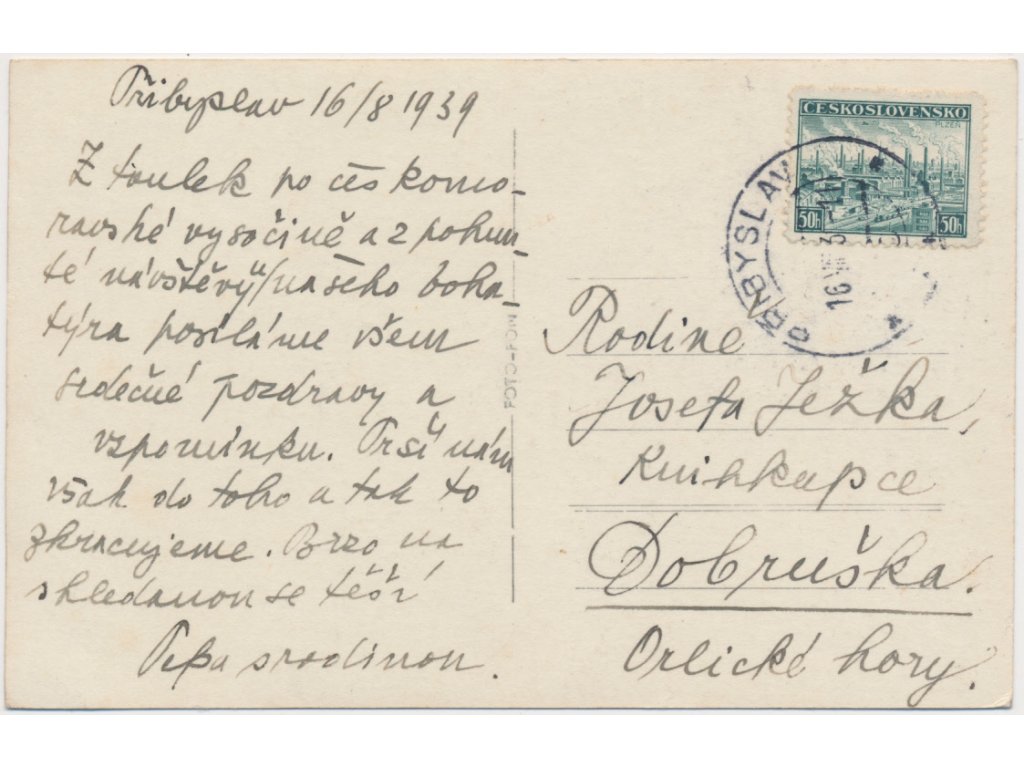 Přibyslav 16/8 1939
Z toulek po českomo-
ravské vysočině a z pohnu-
té návštěvy u našeho boha-
týra posíláme všem
srdečné pozdravy a
vzpomínku. Prší nám
však do toho a tak to
zkracujeme. Brzo na
shledanou se těší
Pepa s rodinou.
FOTO-FON
ČESKOSLOVENSKO
PLZEŇ
50h 50h
PŘIBYSLAV
16 VIII 39
Rodině
Josefa Ježka,
Knihkupce
Dobruška.
Orlické hory.